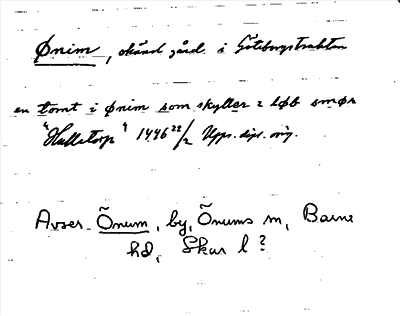 Ønim, okänd gård i Göteborgstrakten
en tomt i Ønim som skyller 2 løb smør
"Hulletorp" 1446 22/2 Upps. dipl. orig.
Avser Õnum, by, Õnums sn, Barne
hd, Skar l ?